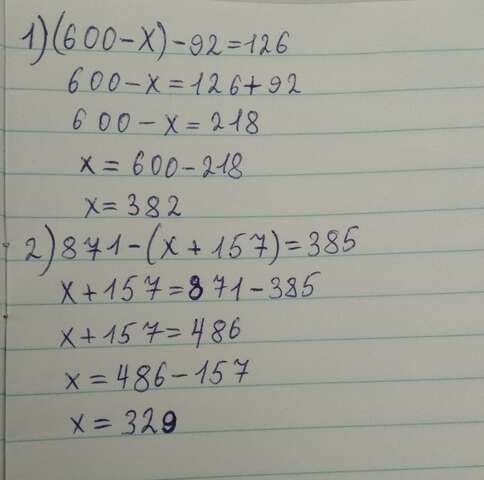 1) (600-x)-92=126
600-x=126+92
600-x=218
x=600-218
x=382
2) 871-(x+157)=385
x+157=871-385
x+157=486
x=486-157
x=329